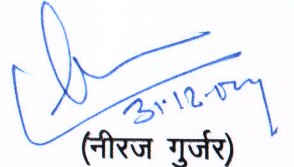 31.12.024
(नीरज गुर्जर)